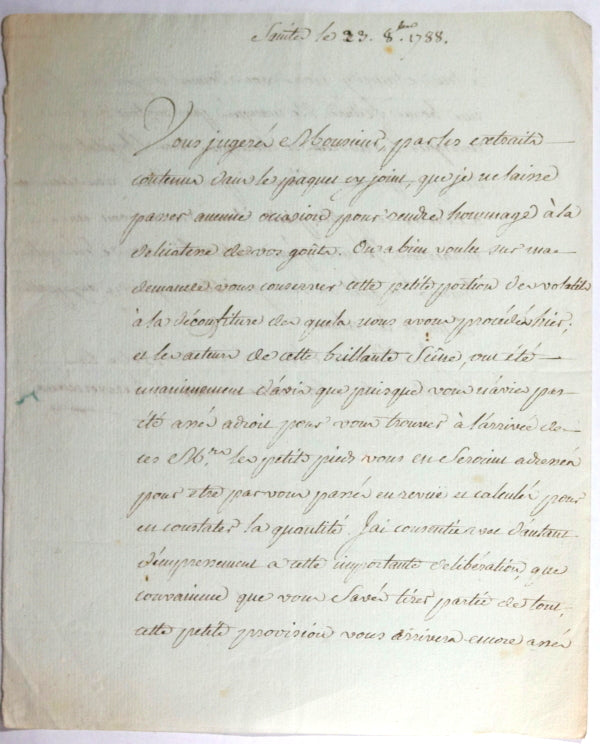 Saintes le 23. 8.bre 1788.
Vous jugerés Monsieur, par les extraits
contenus dans le paquet cy joint, que je ne laisse
passer aucune occasion pour rendre hommage à la
delicatesse de vos goûts. On a bien voulu sur ma
demande vous conserver cette petite portion de volatile
à la déconfiture de la nous avons procédés hier;
et les acteurs de cette brillante Scêne, ont été
unanimement d'avis que puisque vous n'aviés pas
été assés adroit pour vous trouver à l'arrivée de
ces M.rs les petits pieds vous en Seroient adressés
pour être par vous passés en revüe et calculés pour
en constater la quantité. J'ai consentie avec d'autant
d'empressement a cette importante deliberation, que
convaincue que vous Savés tirer partie de tout,
cette petite provision vous arrivera encore assés